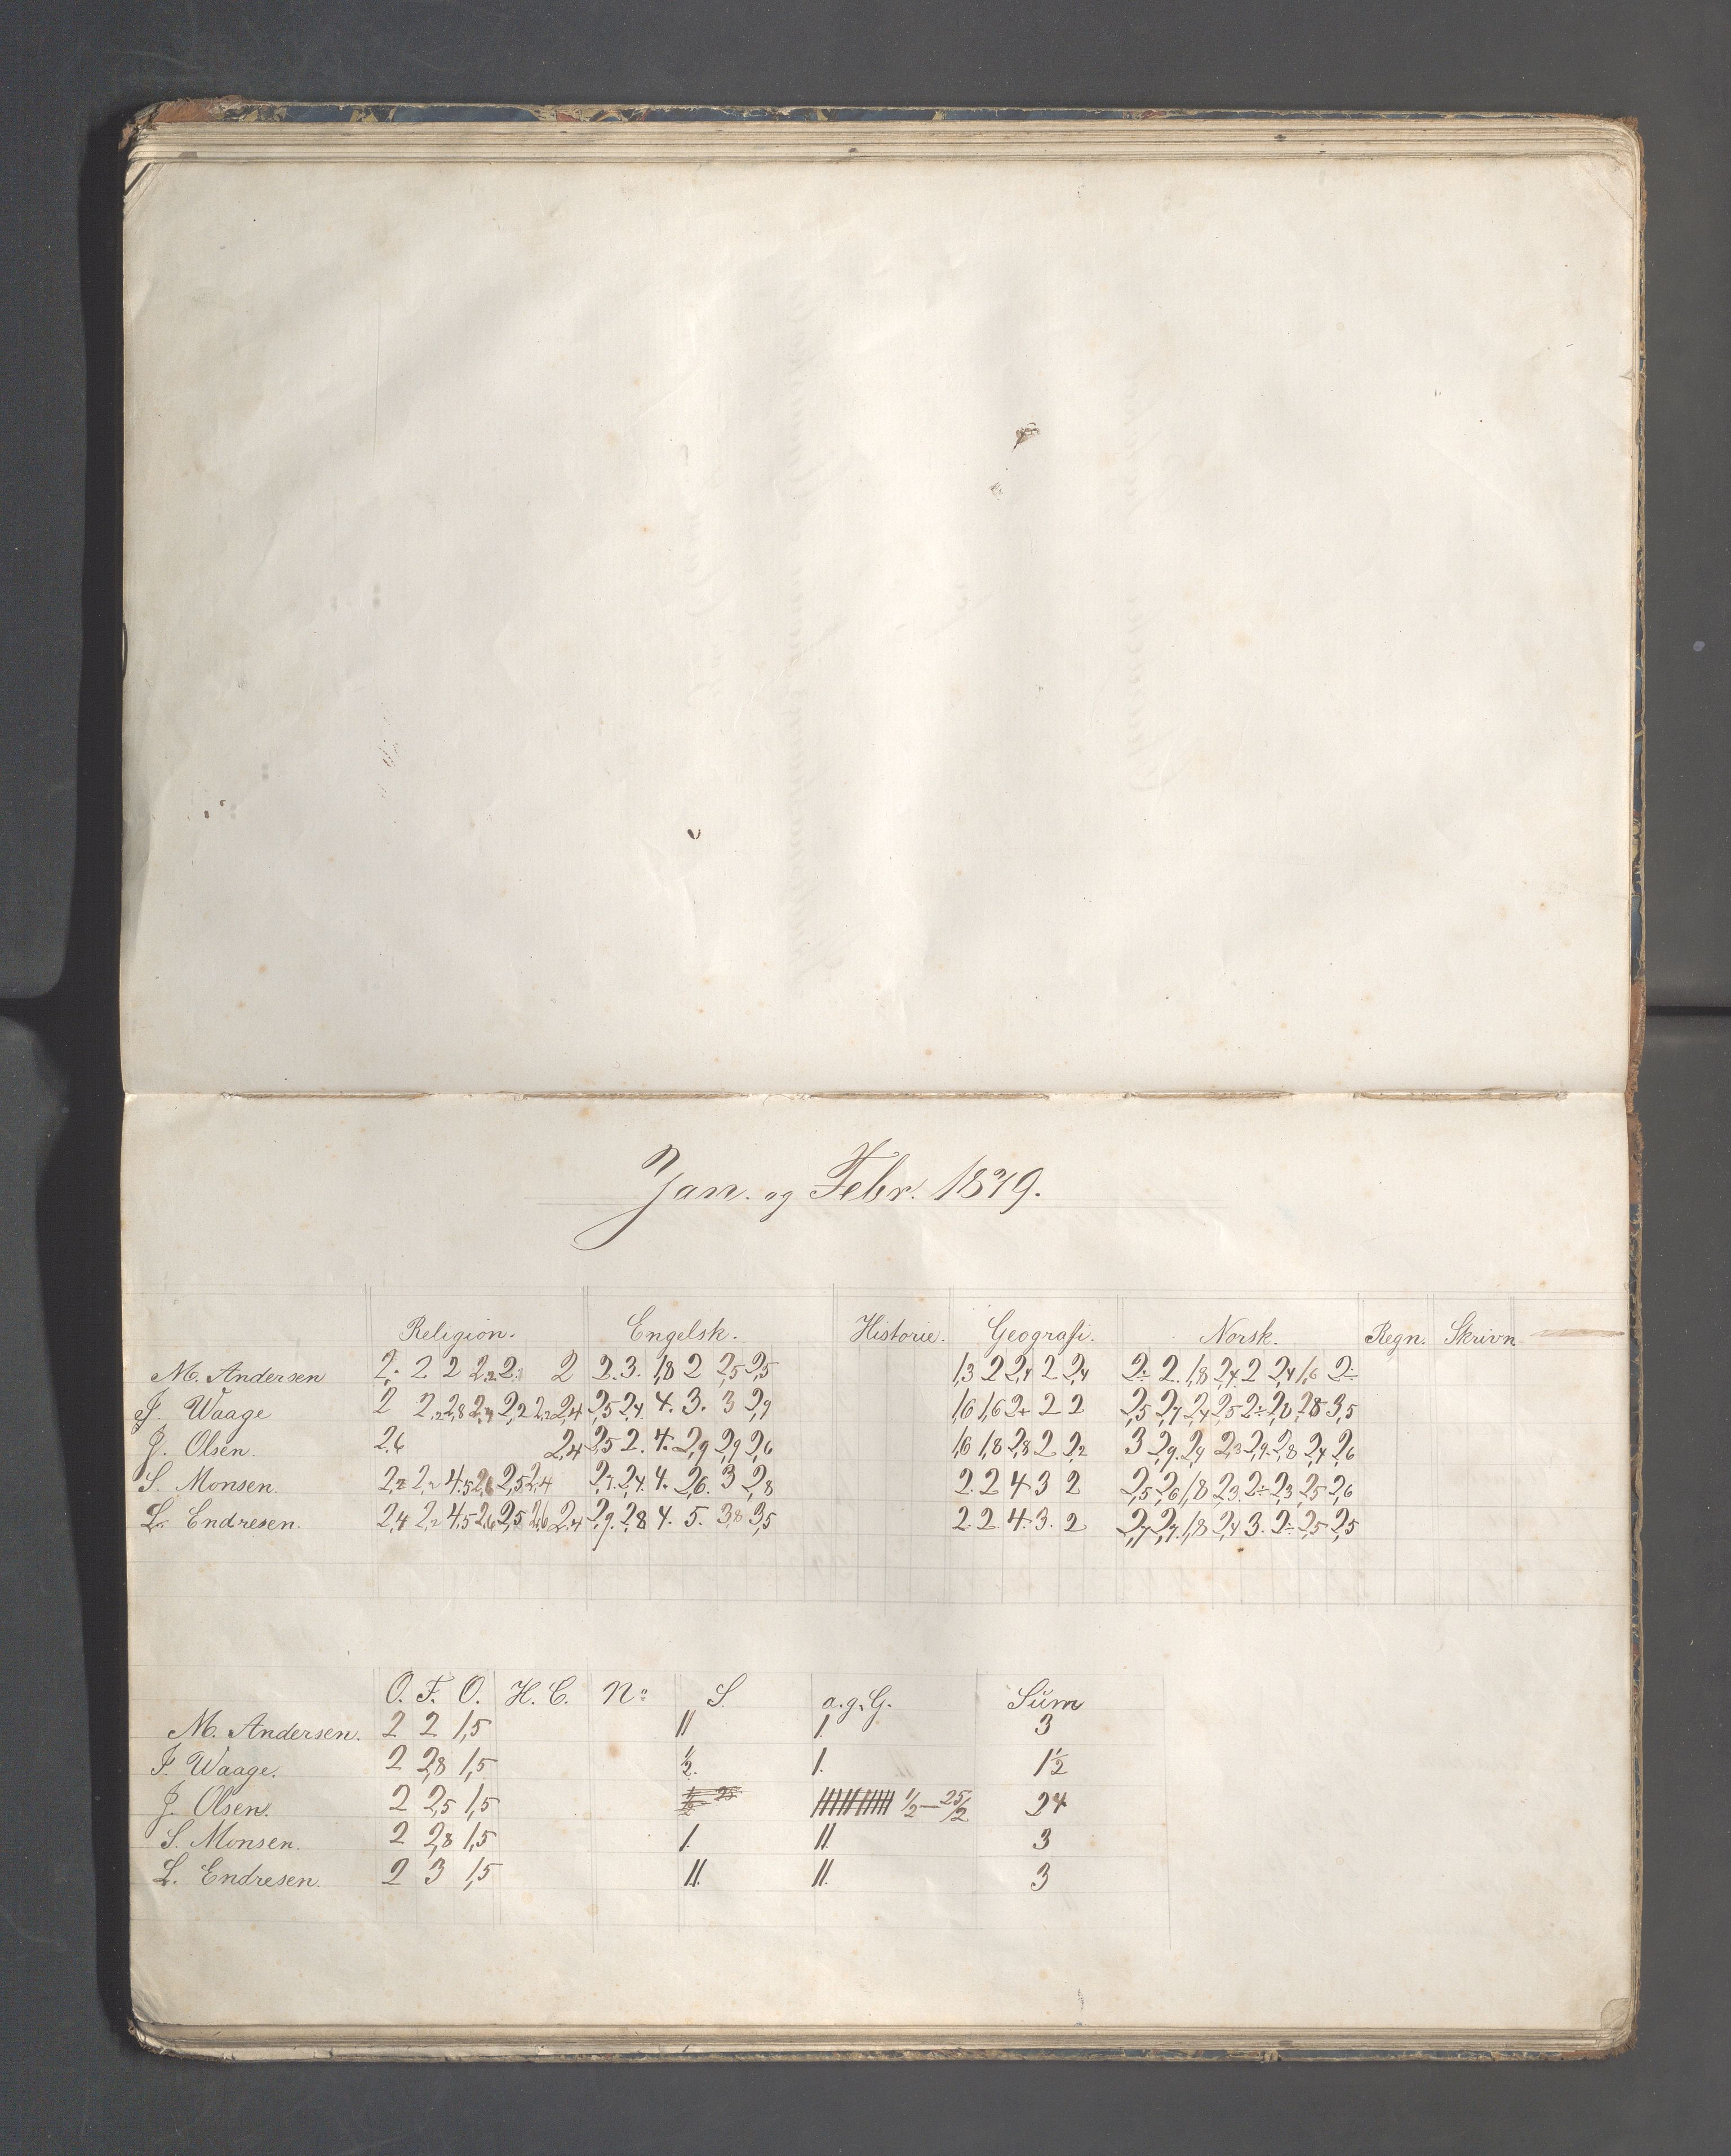 Jan. og Febr. 1879.
Religion. Engelsk. Historie. Geografi. Norsk. Regn. Skrivn.
M. Andersen 2. 2 2 2,2 2,1 2 2. 3. 1,8 2 2,5 2,5 1,3 2 2,4 2 2,4 2÷ 2. 1,8 2,4 2 2,4 1,6 2÷
F. Waage 2 2,2 2,8 2,4 2,2 2,2 2,4 2,5 2,4. 4. 3. 3 2,9 1,6 1,6 2+ 2 2 2,5 2,7 2,4 2,5 2÷ 2,8 2,8 3,5
J. Olsen. 2,6 2,4 2,5 2. 4. 2,9 2,9 2,6 1,6 1,8 2,8 2 2,2 3 2,9. 2,4 2,3 2,9. 2,8 2,4 2,6
S. Monsen. 2,2 2,2 4,5 2,6 2,5 2,4 2,7. 2,4. 4. 2,6. 3 2,8 2. 2 4 3 2 2,5 2,6 1,8 2,3. 2÷ 2,3 2,5 2,6
L. Endresen. 2,4 2,2 4,5 2,6 2,5 2,6 2,4 2,9. 2,8 4. 5. 3,8 3,5 2. 2 4. 3. 2 2,7 2,7. 1,8 2,4 3. 2÷ 2,5 2,5
O. F. O. H. C. No S. a.g.G. Sum
M. Andersen. 2 2 1,5 || |. 3
F. Waage. 2 2,8 1,5 1/2. |. 1 1/2
J. Olsen. 2 2,5 1,5 1/2 — 25/2 24
S. Monsen. 2 2,8 1,5 |. ||. 3
L. Endresen. 2 3 1,5 ||. ||. 3